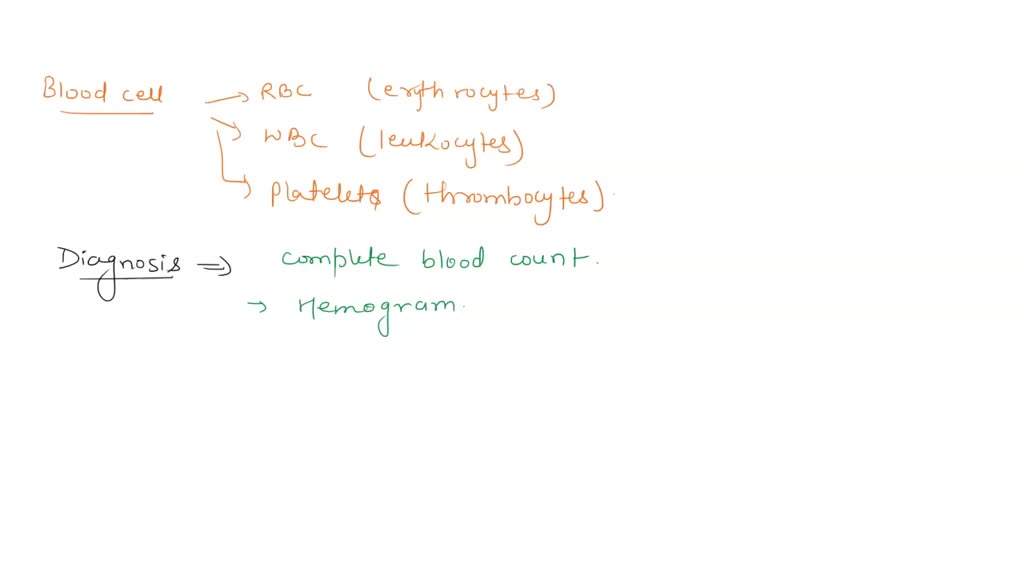 Blood cell → RBC (erythrocytes)
→ WBC (leukocytes)
→ Platelets (thrombocytes)
Diagnosis ⇒ complete blood count.
→ Hemogram.